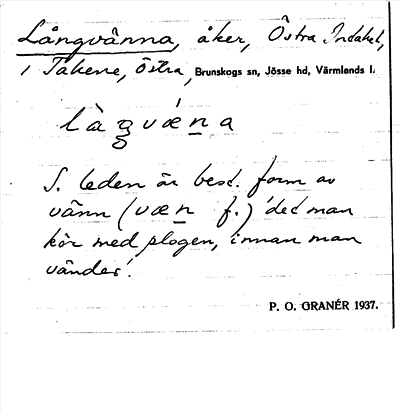 Långvänna, åker, Östra Indaket,
i Takene, Östra, Brunskogs sn, Jösse hd, Värmlands l.
làgvǽna
S. leden är best. form av
vänn (væn f.) 'det man
kör med plogen, innan man
vänder'.
P. O. GRANÉR 1937.